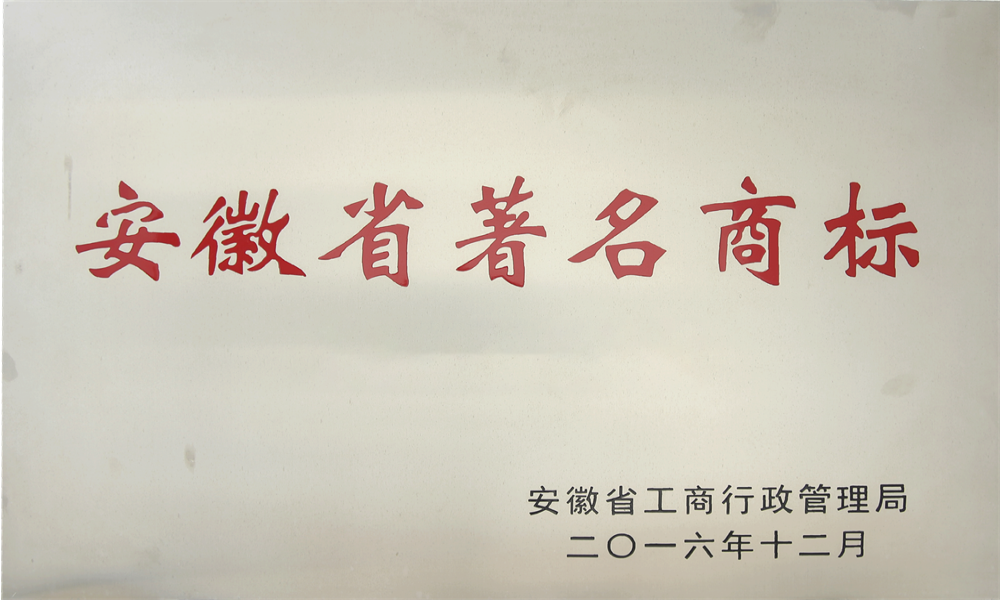 安徽省著名商标
安徽省工商行政管理局
二〇一六年十二月